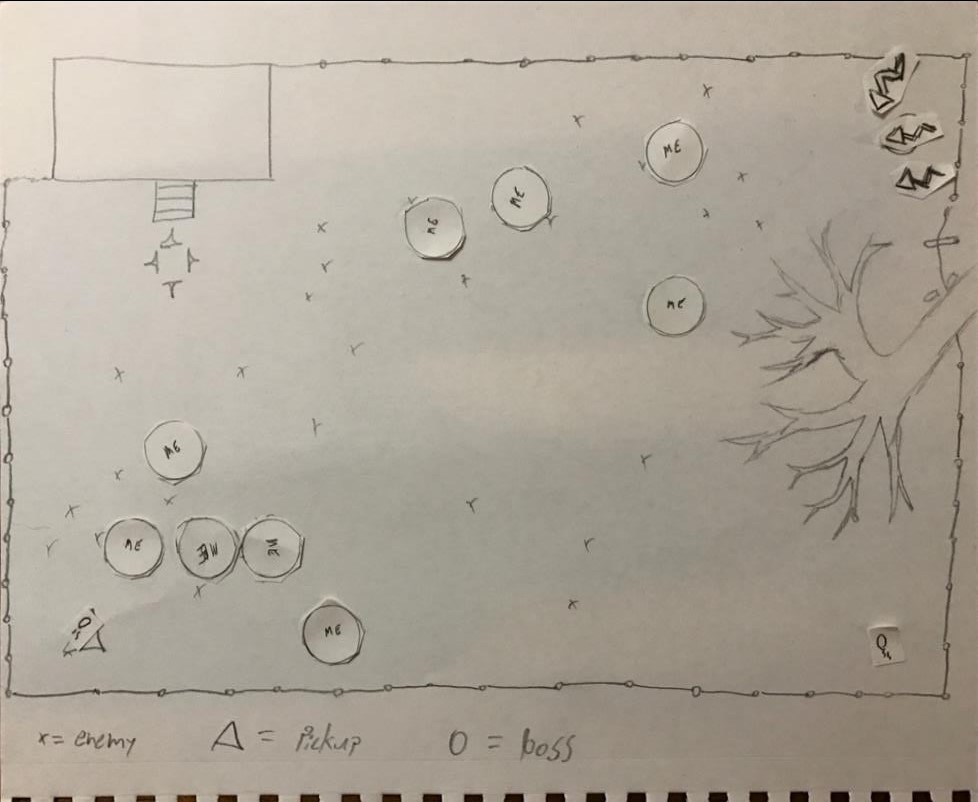 ME
ME
ME
ME
ME
ME
ME
ME
ME
x = enemy Δ = Pickup O = boss